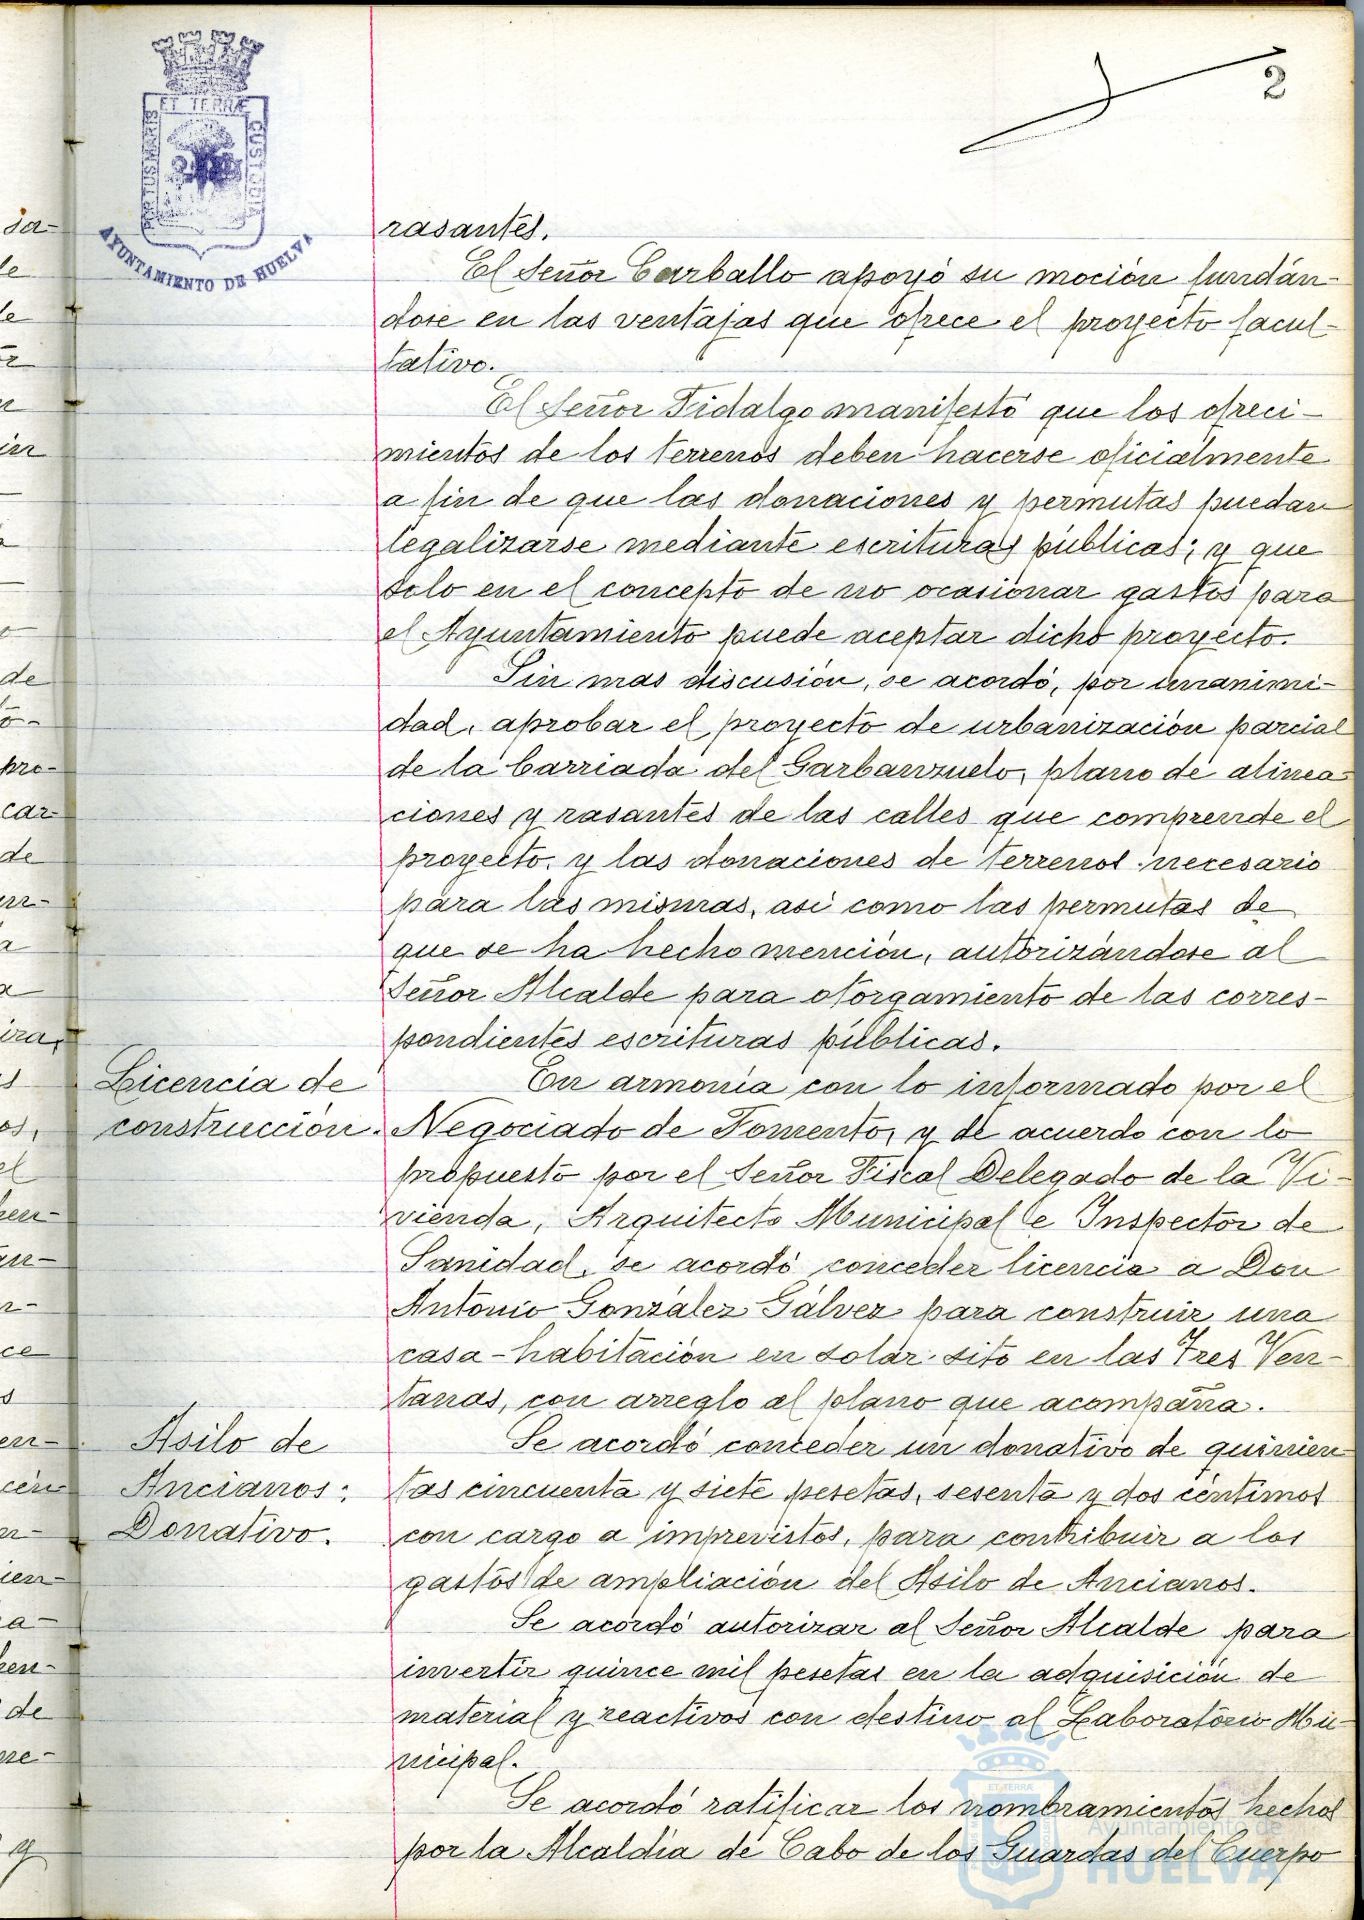 2
ET TERRÆ
PORTUS MARIS
CUSTODIA
AYUNTAMIENTO DE HUELVA
rasantes.
El Señor Carballo apoyó su moción fundán-
dose en las ventajas que ofrece el proyecto facul-
tativo.
El Señor Fidalgo manifestó que los ofreci-
mientos de los terrenos deben hacerse oficialmente
a fin de que las donaciones y permutas puedan
legalizarse mediante escrituras públicas; y que
solo en el concepto de no ocasionar gastos para
el Ayuntamiento puede aceptar dicho proyecto.
Sin mas discusión, se acordó, por unanimi-
dad, aprobar el proyecto de urbanización parcial
de la barriada del Garbanzuelo, plano de alinea-
ciones y rasantes de las calles que comprende el
proyecto, y las donaciones de terrenos necesario
para las mismas, asi como las permutas de
que se ha hecho mención, autorizándose al
Señor Alcalde para otorgamiento de las corres-
pondientes escrituras públicas.
Licencia de
construcción.
En armonía con lo informado por el
Negociado de Fomento, y de acuerdo con lo
propuesto por el Señor Fiscal Delegado de la Vi-
vienda, Arquitecto Municipal e Inspector de
Sanidad, se acordó conceder licencia a Don
Antonio González Gálvez para construir una
casa-habitación en solar sito en las Tres Ven-
tanas, con arreglo al plano que acompaña.
Asilo de
Ancianos:
Donativo.
Se acordó conceder un donativo de quinien-
tas cincuenta y siete pesetas, sesenta y dos céntimos
con cargo a imprevistos, para contribuir a los
gastos de ampliación del Asilo de Ancianos.
Se acordó autorizar al Señor Alcalde para
invertir quince mil pesetas en la adquisición de
material y reactivos con destino al Laboratorio Mu-
nicipal.
Se acordó ratificar los nombramientos hechos
por la Alcaldía de Cabo de los Guardas del Cuerpo
Ayuntamiento de
HUELVA